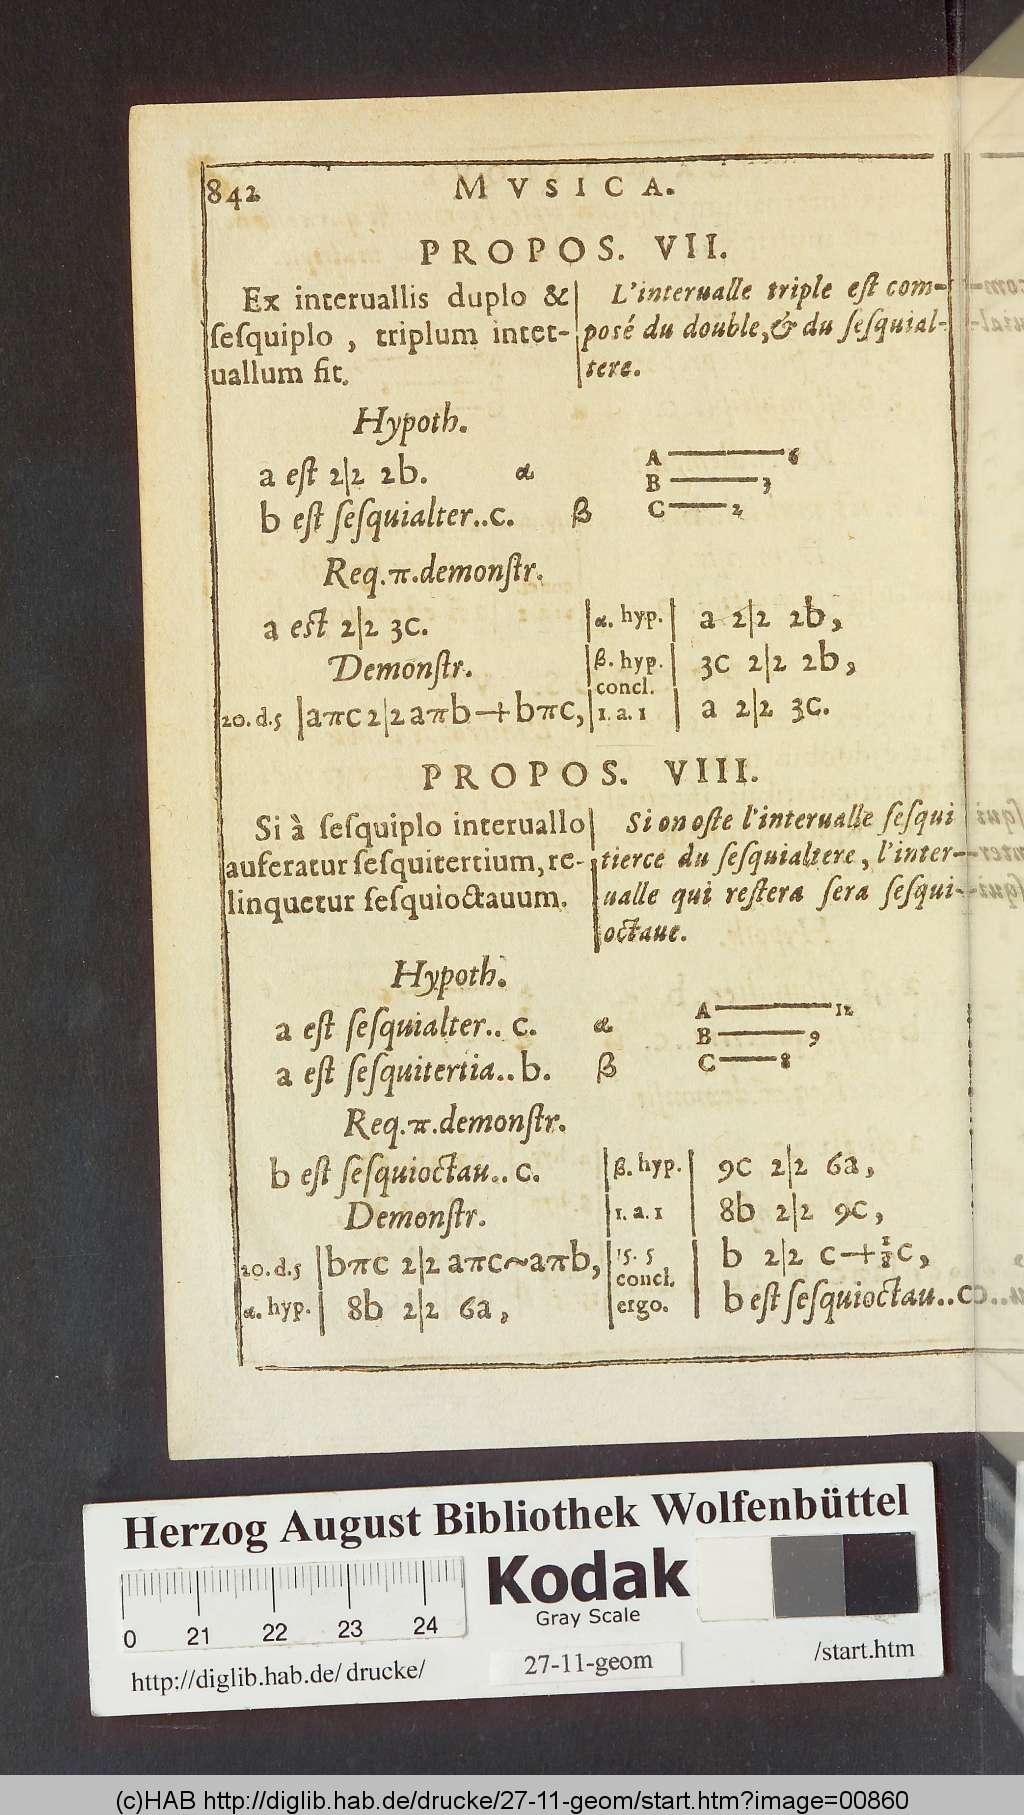 842 MVSICA.
PROPOS. VII.
Ex interuallis duplo &
ſeſquiplo , triplum inter-
uallum fit.
L'interualle triple eſt com-
poſé du double, & du ſeſquial-
tere.
Hypoth.
a eſt 2|2 2b. α
b eſt ſeſquialter..c. β
A 6
B 3
C 2
Req.π.demonſtr.
a eſt 2|2 3c.
Demonſtr.
20. d.5 | aπc 2|2 aπb + bπc,
α. hyp. | a 2|2 2b,
β. hyp. | 3c 2|2 2b,
concl.
1. a. 1 | a 2|2 3c.
PROPOS. VIII.
Si à ſeſquiplo interuallo
auferatur ſeſquitertium, re-
linquetur ſeſquioctauum.
Si on oſte l'interualle ſeſqui
tierce du ſeſquialtere, l'inter-
ualle qui reſtera ſera ſeſqui-
octaue.
Hypoth.
a eſt ſeſquialter.. c. α
a eſt ſeſquitertia.. b. β
A 12
B 9
C 8
Req.π.demonſtr.
b eſt ſeſquioctau.. c.
Demonſtr.
20. d.5 | bπc 2|2 aπc ~ aπb,
α. hyp. | 8b 2|2 6a,
β. hyp. | 9c 2|2 6a,
1. a. 1 | 8b 2|2 9c,
15. 5 | b 2|2 c + 1/8 c,
concl.
ergo. | b eſt ſeſquioctau..c
Herzog August Bibliothek Wolfenbüttel
Kodak
Gray Scale
0 21 22 23 24
http://diglib.hab.de/ drucke/ 27-11-geom /start.htm
(c)HAB http://diglib.hab.de/drucke/27-11-geom/start.htm?image=00860